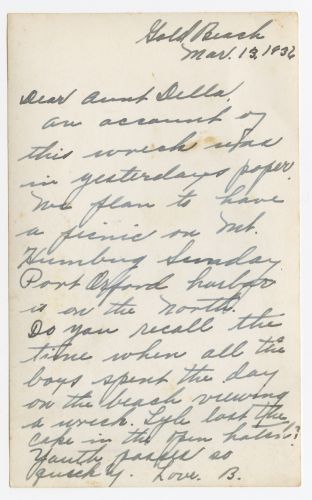 Gold Beach
Mar. 13, 1936
Dear Aunt Della,
An account of
this wreck was
in yesterdays paper.
We plan to have
a picnic on Mt.
Humbug Sunday.
Port Orford harbor
is on the north.
Do you recall the
time when all the
boys spent the day
on the beach viewing
a wreck. Lyle lost the
cape in the open hatch?
Youth passes so
quickly. Love. B.